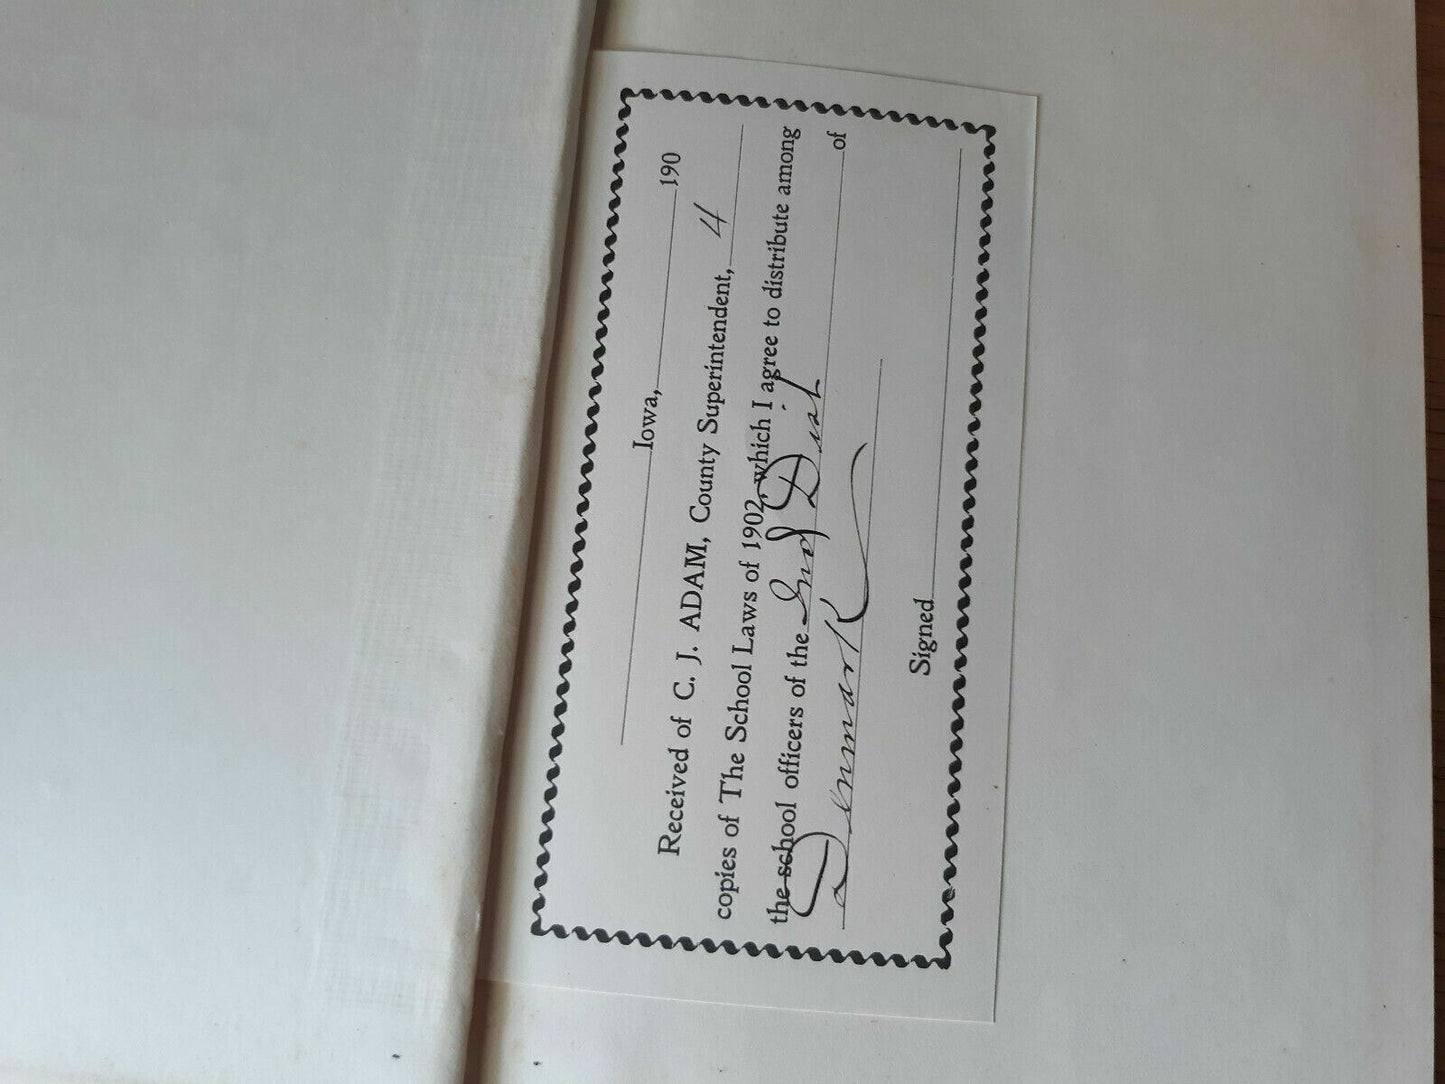 Iowa, 190
Received of C. J. ADAM, County Superintendent, 4
copies of The School Laws of 1902, which I agree to distribute among
the school officers of the Ind Dist of
Denmark
Signed